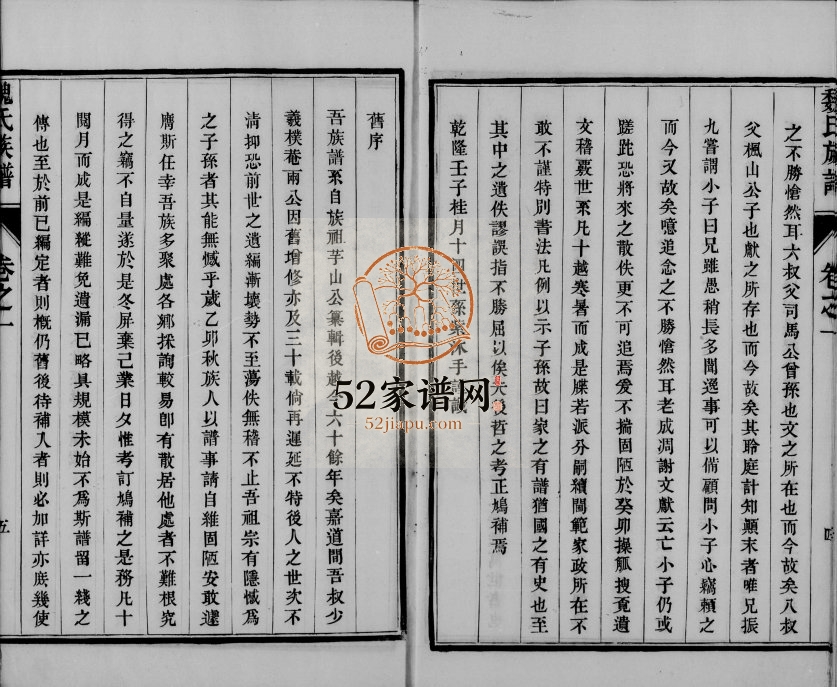 魏氏族譜
卷之一
之不勝愴然耳六叔父司馬公曾孫也文之所在也而今故矣八叔
父楓山公子也獻之所存也而今故矣其聆庭計知顚末者唯兄振
九嘗謂小子曰兄雖愚稍長多聞逸事可以備顧問小子心竊賴之
而今又故矣噫追念之不勝愴然耳老成凋謝文獻云亡小子仍或
蹉跎恐將來之散佚更不可追焉爰不揣固陋於癸卯操觚搜覓遺
文稽覈世系凡十越寒暑而成是牒若派分嗣續閫範家政所在不
敢不謹特別書法凡例以示子孫故曰家之有譜猶國之有史也至
其中之遺佚謬誤指不勝屈以俟夫後哲之考正鳩補焉
乾隆壬子桂月十四世孫紫沐手謹識
舊序
吾族譜系自族祖芋山公纂輯後越今六十餘年矣嘉道間吾叔少
羲樸菴兩公因舊增修亦及三十載倘再遲延不特後人之世次不
清抑恐前世之遺編漸壞勢不至蕩佚無稽不止吾祖宗有隱憾爲
之子孫者其能無憾乎歲乙卯秋族人以譜事請自維固陋安敢遽
膺斯任幸吾族多聚處各鄉採詢較易卽有散居他處者不難根究
得之竊不自量遂於是冬屏棄己業日夕惟考訂鳩補之是務凡十
閱月而成是編縱難免遺漏已略具規模未始不爲斯譜留一綫之
傳也至於前已編定者則概仍舊後待補入者則必加詳亦庶幾使
魏氏族譜
卷之一
五
52家谱网
52jiapu.com